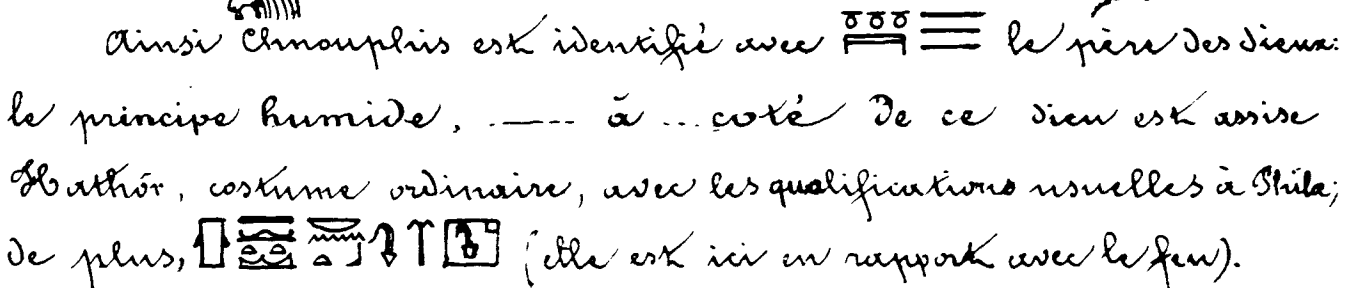 Ainsi Chnouphis est identifié avec le père des dieux:
le principe humide, à coté de ce dieu est assise
Hathôr, costume ordinaire, avec les qualifications usuelles à Philæ;
de plus, (elle est ici en rapport avec le feu).